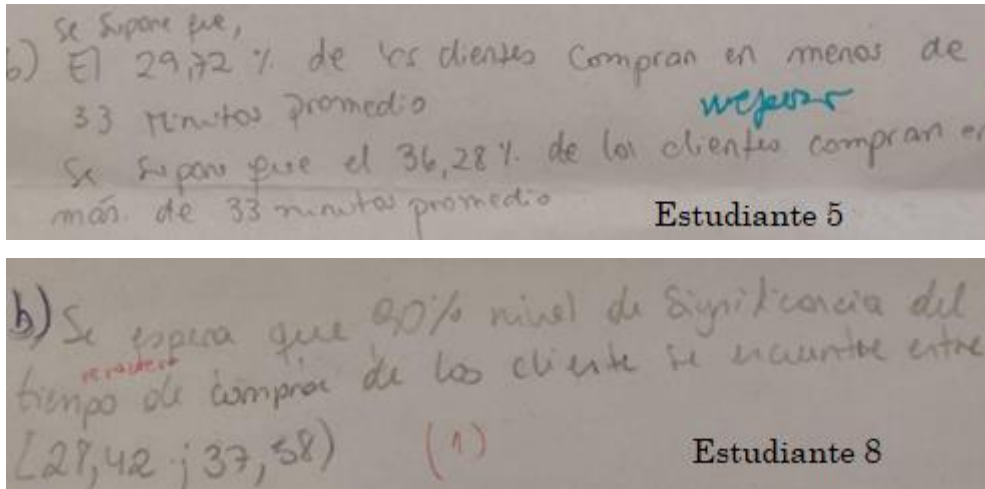 se supone que,
b) El 29,72 % de los clientes compran en menos de
33 minutos promedio
Se supone que el 36,28 % de los clientes compran en
más de 33 minutos promedio
Estudiante 5
b) Se espera que 90% nivel de significancia del
tiempo de compra de los cliente se encuentre entre
[28,42 ; 37,58) (1)
Estudiante 8